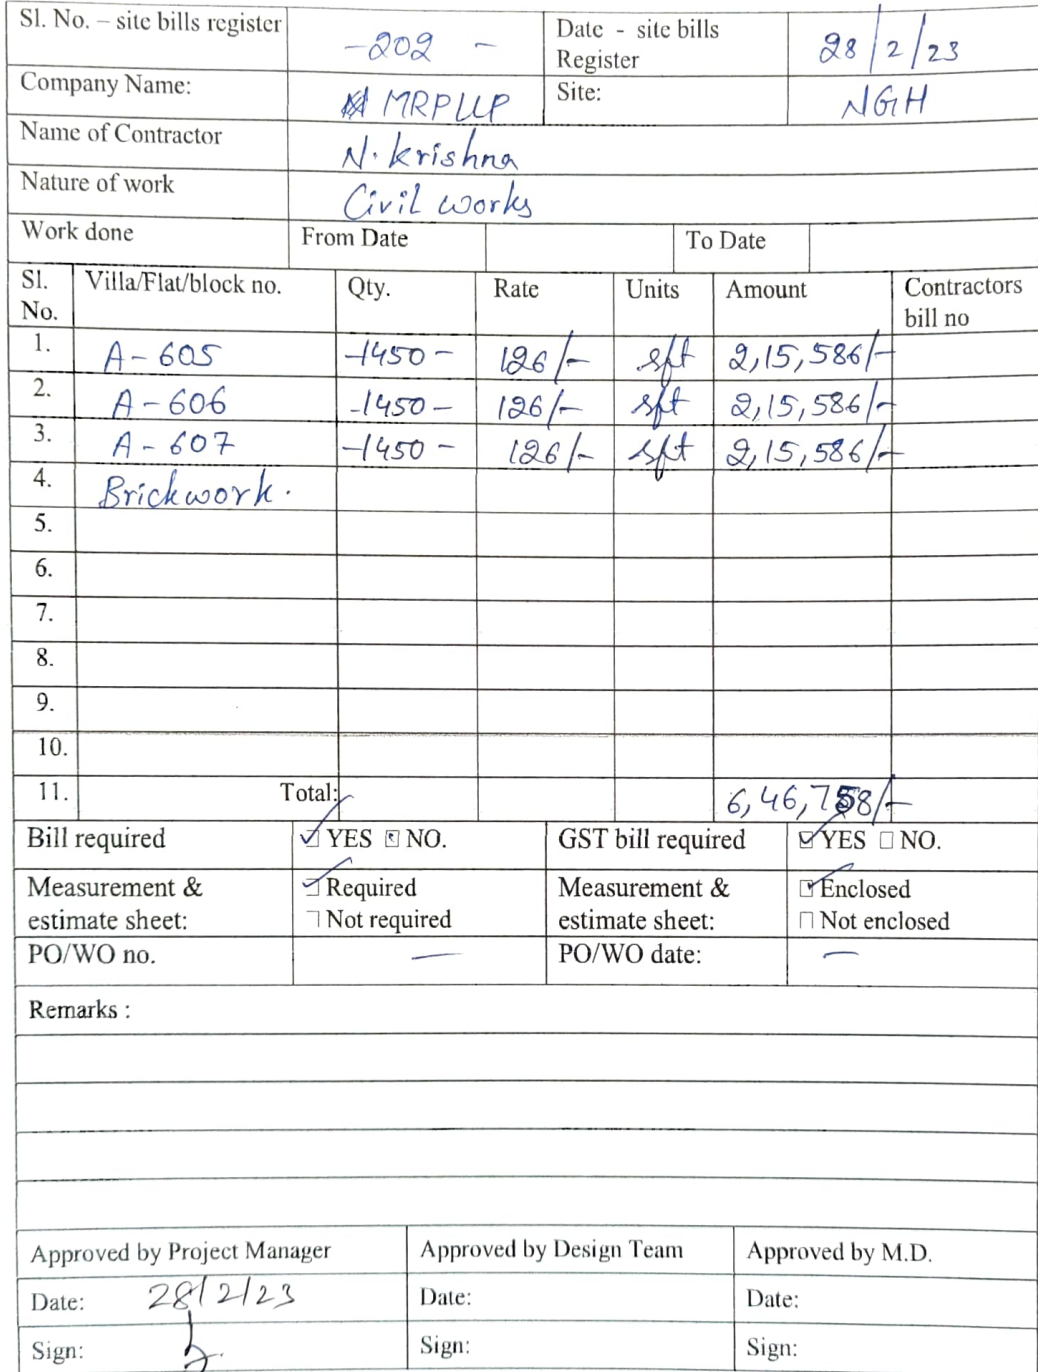 Sl. No. – site bills register -202 - Date - site bills Register 28/2/23
Company Name: MRPLLP Site: NGH
Name of Contractor N. Krishna
Nature of work Civil works
Work done From Date To Date
Sl. No. Villa/Flat/block no. Qty. Rate Units Amount Contractors bill no
1. A-605 -1450- 126/- sft 2,15,586/-
2. A-606 -1450- 126/- sft 2,15,586/-
3. A-607 -1450- 126/- sft 2,15,586/-
4. Brickwork.
5.
6.
7.
8.
9.
10.
11. Total: 6,46,758/-
Bill required YES NO. GST bill required YES NO.
Measurement & estimate sheet: Required Not required Measurement & estimate sheet: Enclosed Not enclosed
PO/WO no. — PO/WO date: —
Remarks :
Approved by Project Manager Approved by Design Team Approved by M.D.
Date: 28/2/23 Date: Date:
Sign: Sign: Sign: